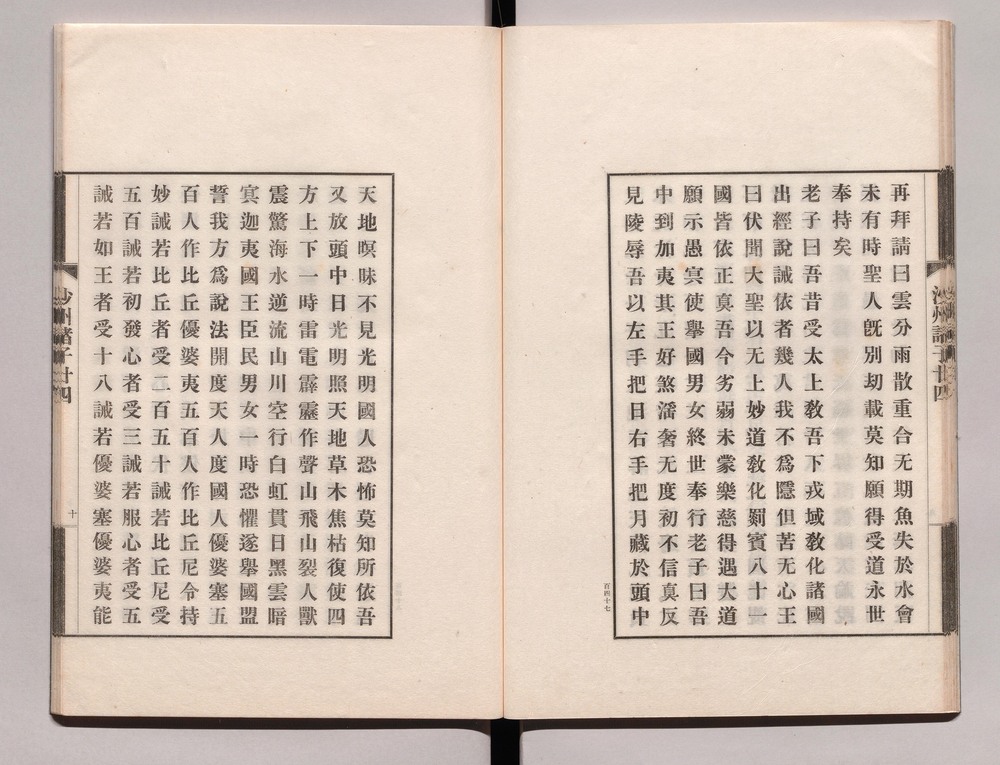 再拜請曰雲分雨散重合无期魚失於水會
未有時聖人旣別劫載莫知願得受道永世
奉持矣
老子曰吾昔受太上敎吾下戎域敎化諸國
出經說誡依者幾人我不爲隱但苦无心王
曰伏聞大聖以无上妙道敎化罽賓八十一
國皆依正真吾今劣弱未蒙樂慈得遇大道
願示愚㝠使舉國男女終世奉行老子曰吾
中到加夷其王好煞㵽奢无度初不信真反
見陵辱吾以左手把日右手把月藏於頭中
百四十七
天地暝昧不見光明國人恐怖莫知所依吾
又放頭中日光明照天地草木焦枯復使四
方上下一時雷電霹靂作聲山飛山裂人獸
震驚海水逆流山川空行白虹貫日黑雲暗
㝠迦夷國王臣民男女一時恐懼遂舉國盟
誓我方爲說法開度天人度國人優婆塞五
百人作比丘優婆夷五百人作比丘尼令持
妙誡若比丘者受二百五十誡若比丘尼受
五百誡若初發心者受三誡若服心者受五
誡若如王者受十八誡若優婆塞優婆夷能
沙州諸子廿四
十